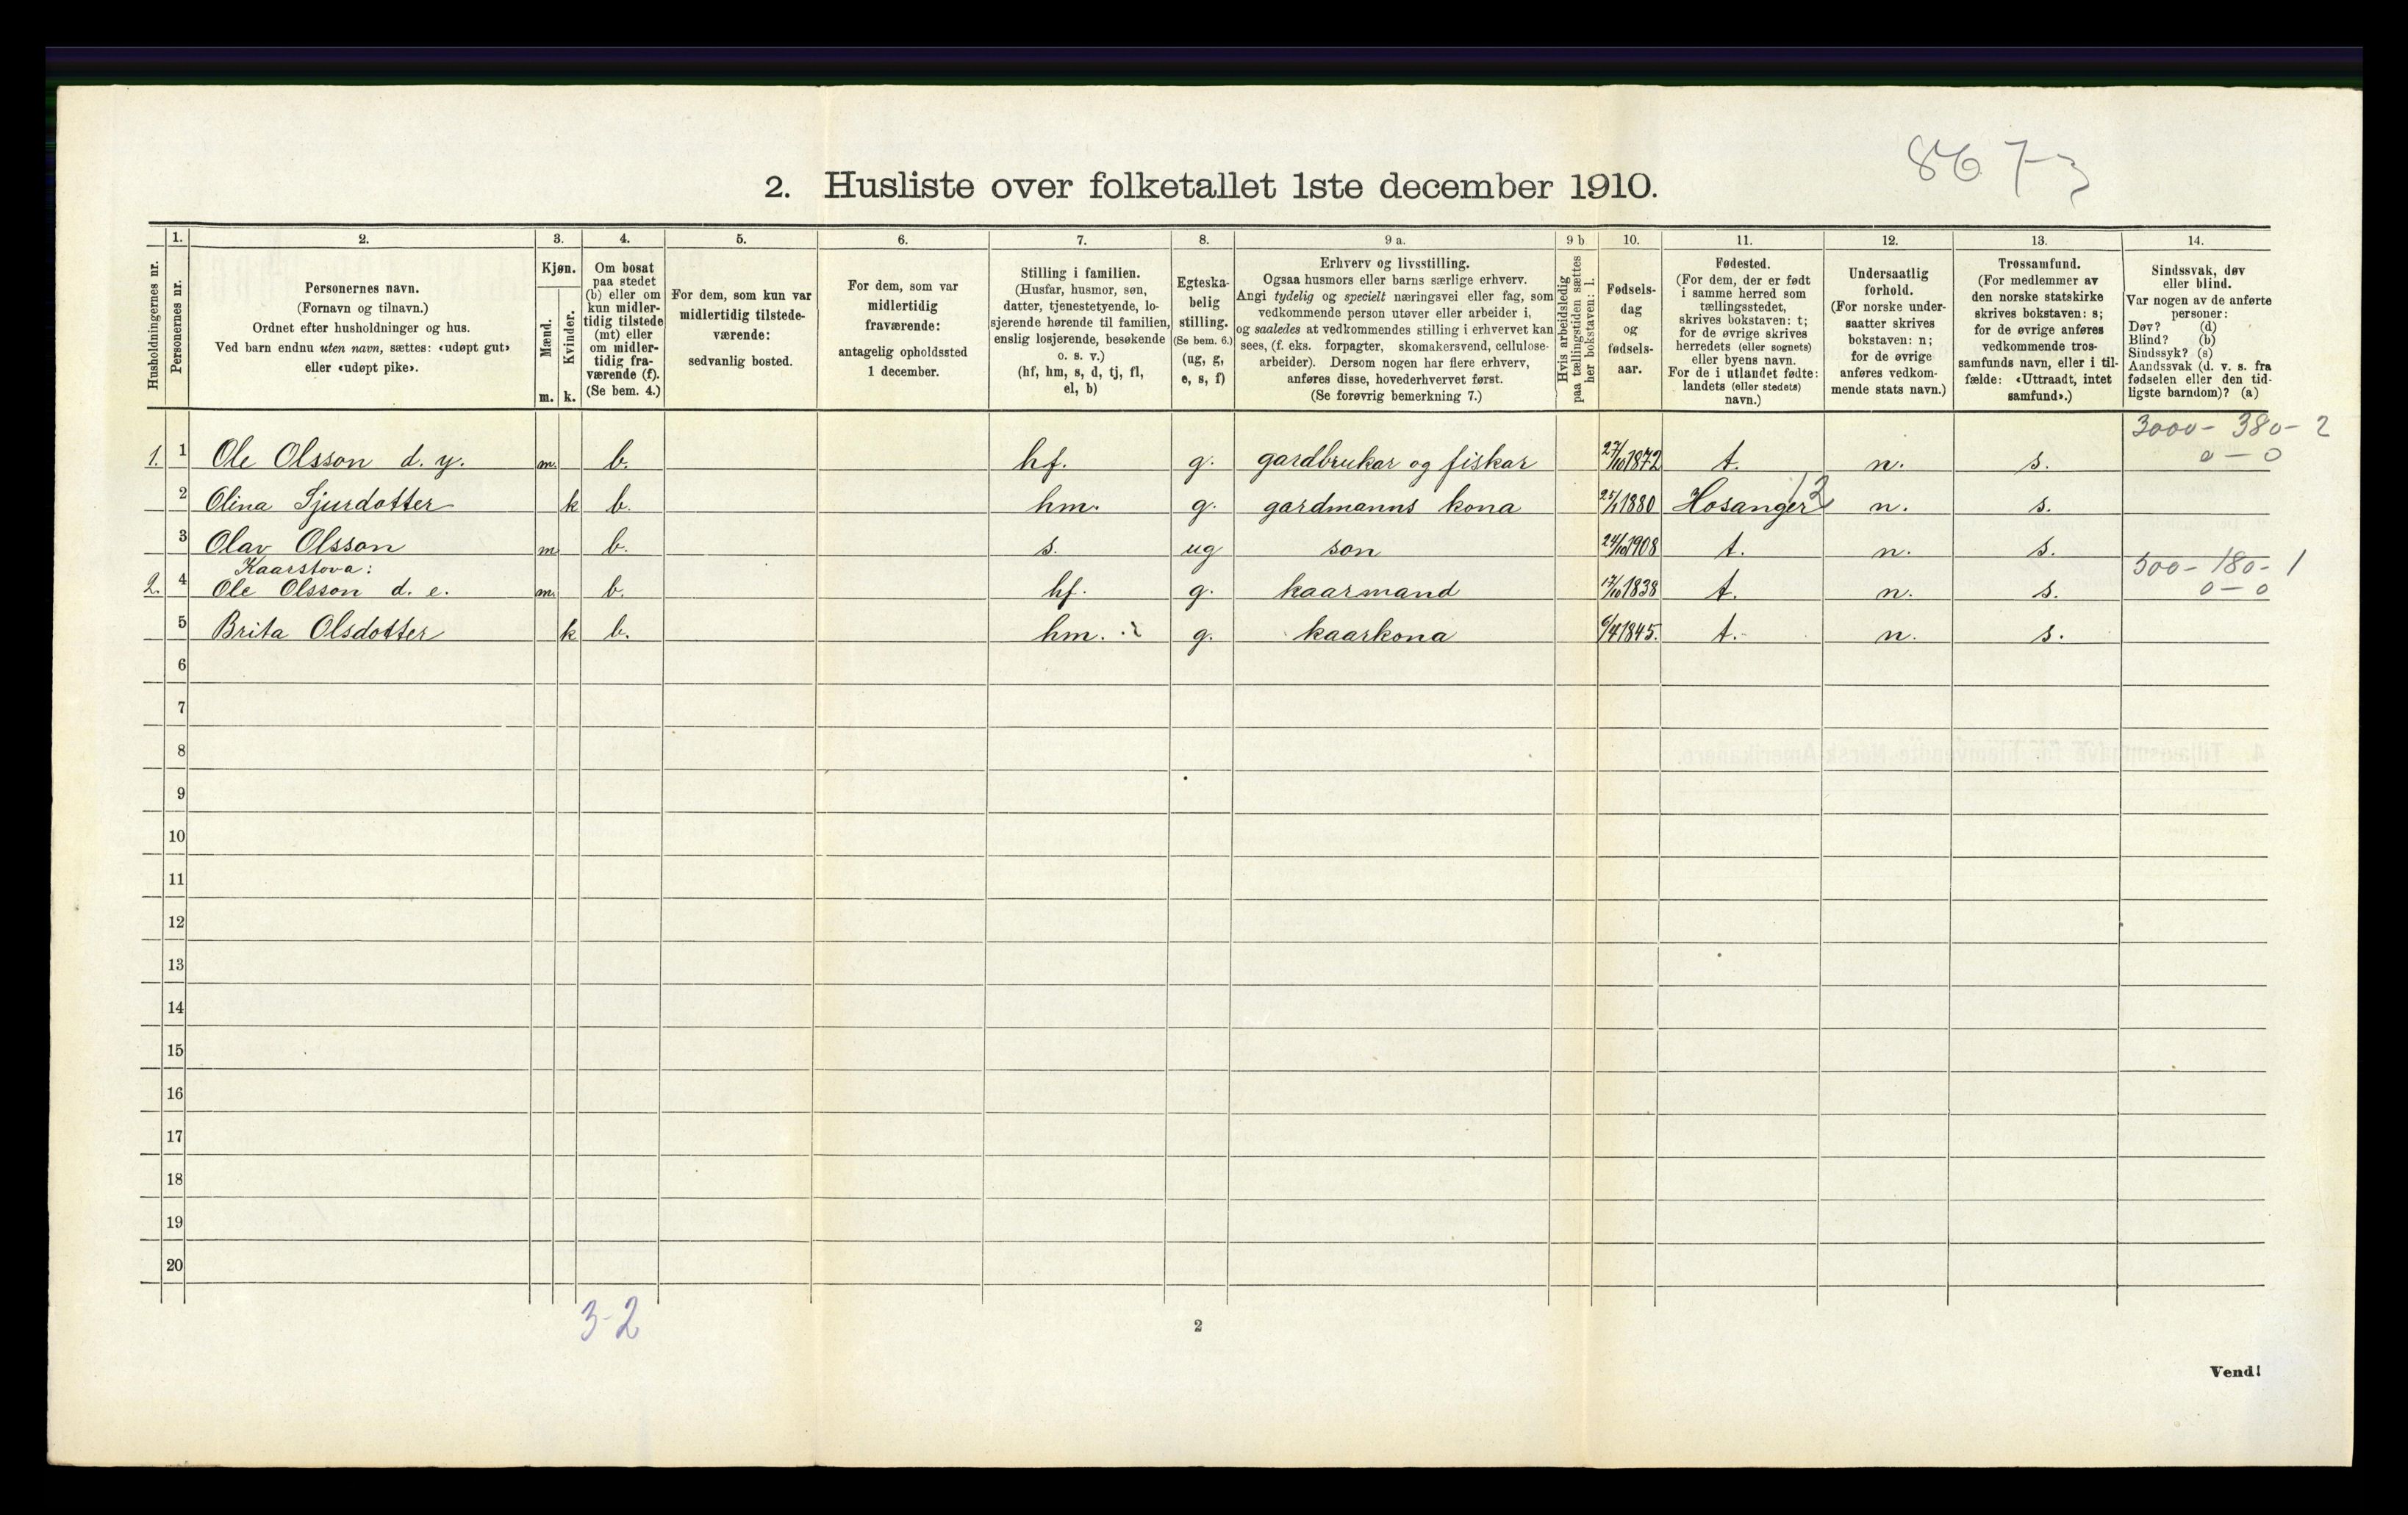 867-3
2. Husliste over folketallet 1ste december 1910.
Husholdningernes nr.
1. Personernes nr.
2. Personernes navn.
(Fornavn og tilnavn.)
Ordnet efter husholdninger og hus.
Ved barn endnu uten navn, sættes: «udøpt gut»
eller «udøpt pike».
3. Kjøn.
Mænd. m.
Kvinder. k.
4. Om bosat
paa stedet
(b) eller om
kun midler-
tidig tilstede
(mt) eller
om midler-
tidig fra-
værende (f).
(Se bem. 4.)
5. For dem, som kun var
midlertidig tilstede-
værende:
sedvanlig bosted.
6. For dem, som var
midlertidig
fraværende:
antagelig opholdssted
1 december.
7. Stilling i familien.
(Husfar, husmor, søn,
datter, tjenestetyende, lo-
sjerende hørende til familien,
enslig losjerende, besøkende
o. s. v.)
(hf, hm, s, d, tj, fl,
el, b)
8. Egteska-
belig
stilling.
(Se bem. 6.)
(ug, g,
e, s, f)
9 a. Erhverv og livsstilling.
Ogsaa husmors eller barns særlige erhverv.
Angi tydelig og specielt næringsvei eller fag, som
vedkommende person utøver eller arbeider i,
og saaledes at vedkommendes stilling i erhvervet kan
sees, (f. eks. forpagter, skomakersvend, cellulose-
arbeider). Dersom nogen har flere erhverv,
anføres disse, hovederhvervet først.
(Se forøvrig bemerkning 7.)
9 b Hvis arbeidsledig
paa tællingstiden sættes
her bokstaven: l.
10. Fødsels-
dag
og
fødsels-
aar.
11. Fødested.
(For dem, der er født
i samme herred som
tællingsstedet,
skrives bokstaven: t;
for de øvrige skrives
herredets (eller sognets)
eller byens navn.
For de i utlandet fødte:
landets (eller stedets)
navn.)
12. Undersaatlig
forhold.
(For norske under-
saatter skrives
bokstaven: n;
for de øvrige
anføres vedkom-
mende stats navn.)
13. Trossamfund.
(For medlemmer av
den norske statskirke
skrives bokstaven: s;
for de øvrige anføres
vedkommende tros-
samfunds navn, eller i til-
fælde: «Uttraadt, intet
samfund».)
14. Sindssvak, døv
eller blind.
Var nogen av de anførte
personer:
Døv? (d)
Blind? (b)
Sindssyk? (s)
Aandssvak (d. v. s. fra
fødselen eller den tid-
ligste barndom)? (a)
3000- 380- 2
1. 1 Ole Olsson d. y. m. b. hf. g. gardbrukar og fiskar 27/10 1872 t. n. s. 0-0
2 Olina Sjurdotter k b. hm. g. gardmanns kona 25/1 1880 Hosanger 12 n. s.
3 Olav Olsson m b. s. ug son 24/10 1908 t. n. s.
Kaarstova: 500- 180- 1
2. 4 Ole Olsson d. e. m. b. hf. g. kaarmand 17/10 1838 t. n. s. 0-0
5 Brita Olsdotter k b. hm. g. kaarkona 6/4 1845. t. n. s.
6
7
8
9
10
11
12
13
14
15
16
17
18
19
20
3-2
2
Vend!